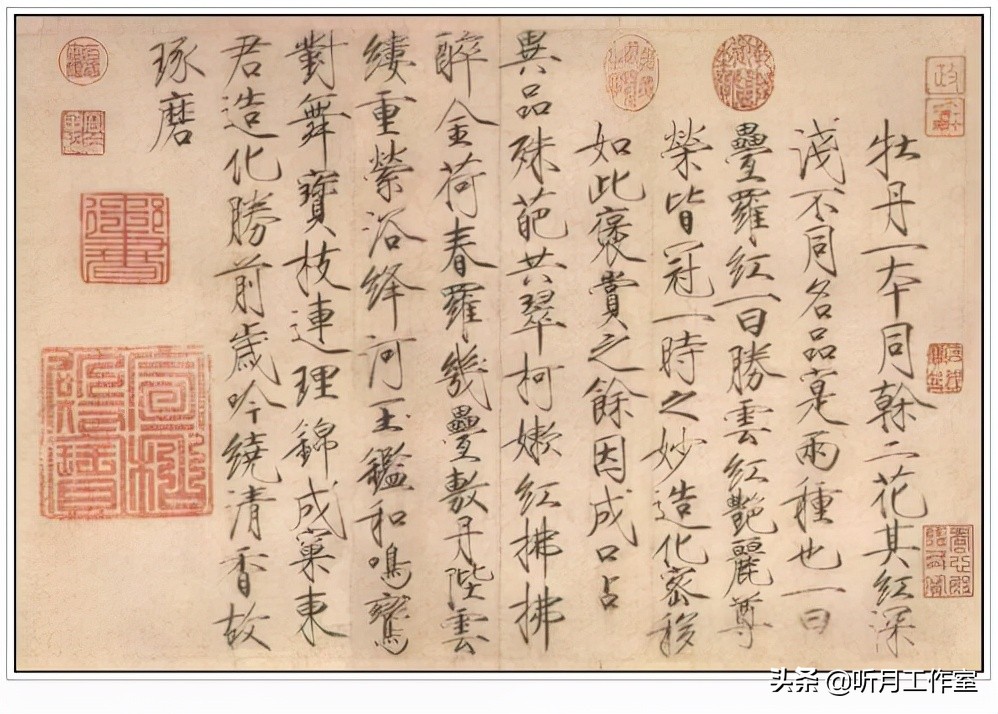 牡丹一本同榦二花其紅深
淺不同名品寔兩種也一曰
疊羅紅一曰勝雲紅艷麗尊
榮皆冠一時之妙造化密移
如此褒賞之餘因成口占
異品殊葩共翠柯嫰紅拂拂
醉金荷春羅幾疊敷丹陛雲
縷重縈浴絳河玉鑑和鳴鸞
對舞寶枝連理錦成窠東
君造化勝前歲吟繞清香故
琢磨
头条 @听月工作室